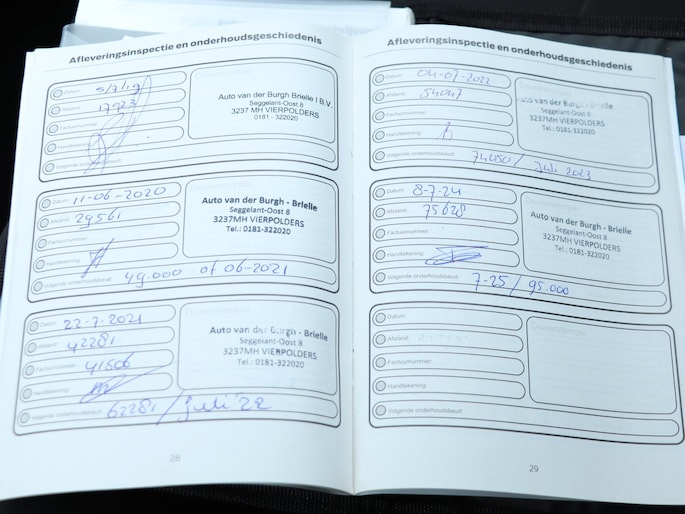 Afleveringsinspectie en onderhoudsgeschiedenis
Datum: 5/7/19
Afstand: 17923
Factuurnummer:
Handtekening:
Volgende onderhoudsbeurt:
Dealerstempel:
Auto van der Burgh Brielle I B.V.
Seggelant-Oost 8
3237 MH VIERPOLDERS
0181 - 322020
Datum: 11-06-2020
Afstand: 29561
Factuurnummer:
Handtekening:
Volgende onderhoudsbeurt: 49.000 of 06-2021
Auto van der Burgh - Brielle
Seggelant-Oost 8
3237MH VIERPOLDERS
Tel.: 0181-322020
Datum: 22-7-2021
Afstand: 42281
Factuurnummer: 41506
Handtekening:
Volgende onderhoudsbeurt: 62281 / Juli 22
Auto van der Burgh - Brielle
Seggelant-Oost 8
3237MH VIERPOLDERS
Tel.: 0181-322020
28
Afleveringsinspectie en onderhoudsgeschiedenis
Datum: 04-07-2022
Afstand: 54047
Factuurnummer:
Handtekening:
Volgende onderhoudsbeurt: 74050 / Juli 2023
Auto van der Burgh - Brielle
Seggelant-Oost 8
3237MH VIERPOLDERS
Tel.: 0181-322020
Datum: 8-7-24
Afstand: 75628
Factuurnummer:
Handtekening:
Volgende onderhoudsbeurt: 7-25 / 95.000
Auto van der Burgh - Brielle
Seggelant-Oost 8
3237MH VIERPOLDERS
Tel.: 0181-322020
Datum:
Afstand:
Factuurnummer:
Handtekening:
Volgende onderhoudsbeurt:
Dealerstempel:
29